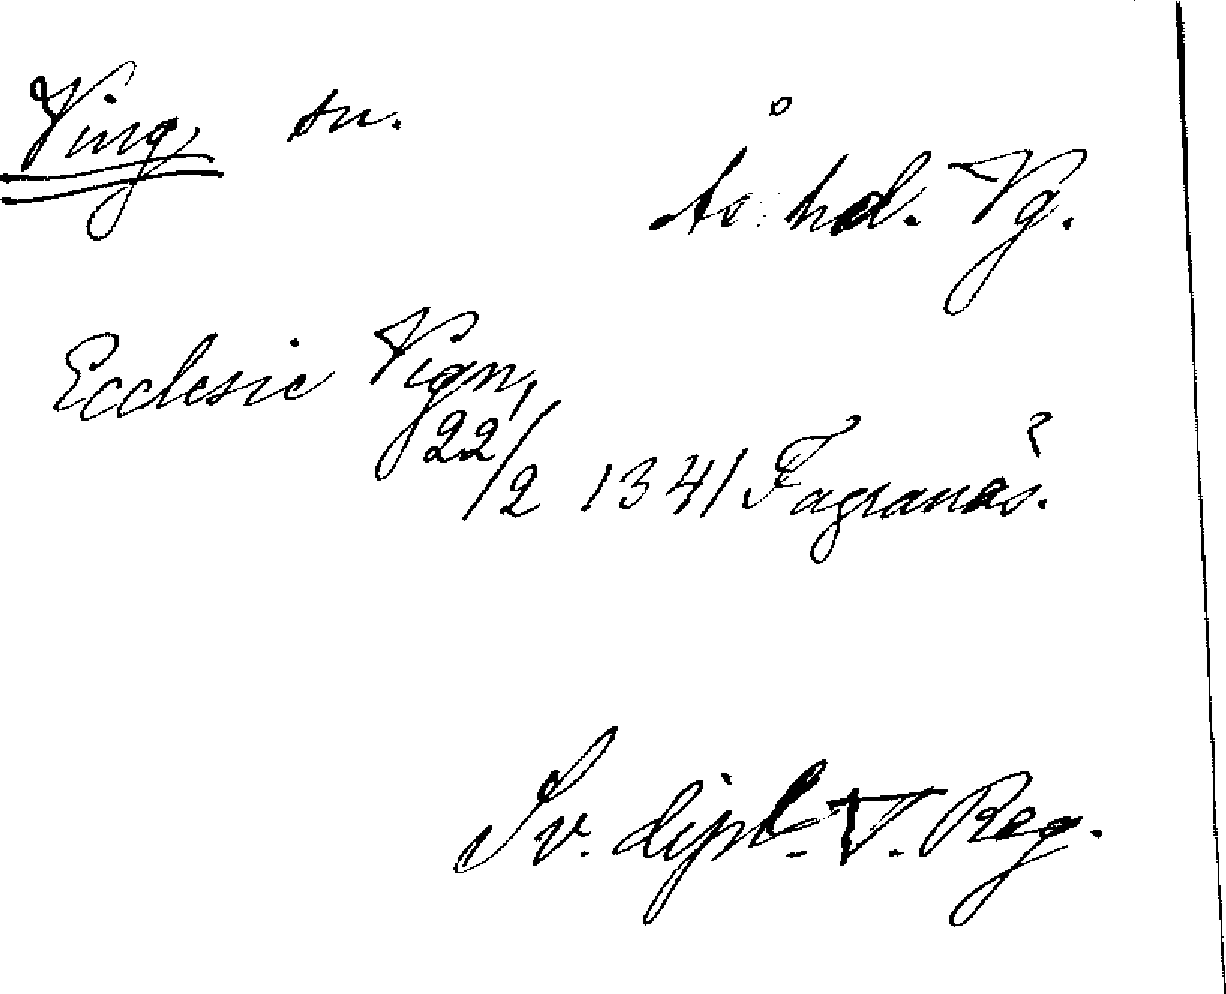 Ving, sn.
Ås hd. Vg.
Ecclesie Vign,
22/2 1341 Fagranæs.
Sv. dipl. V. Reg.